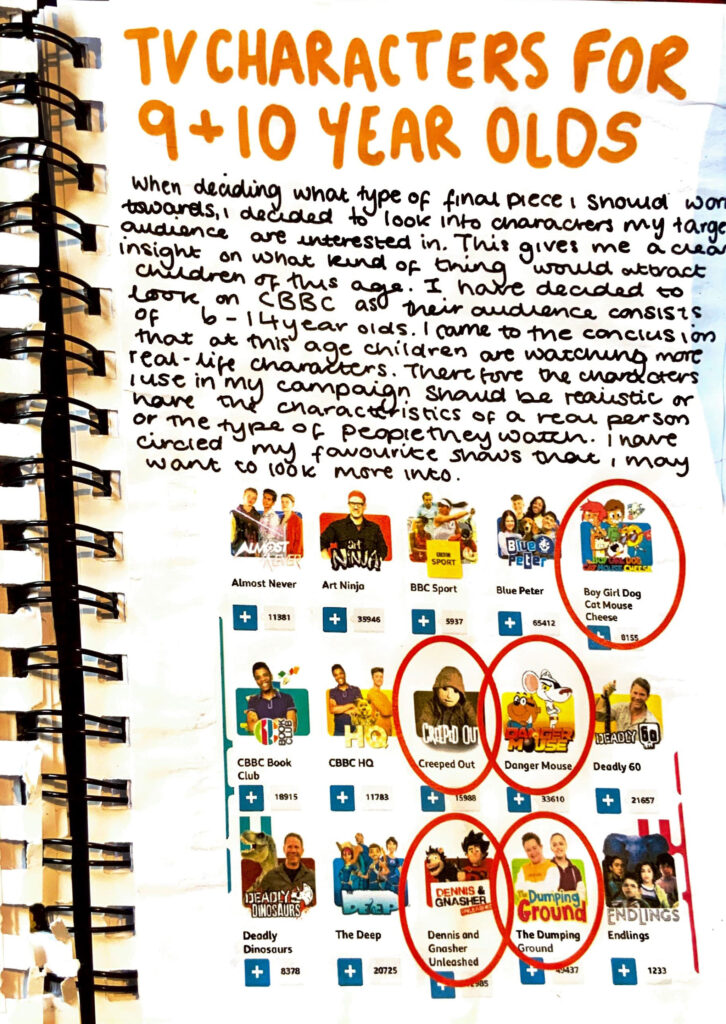 TV CHARACTERS FOR
9+10 YEAR OLDS
When deciding what type of final piece i should wor
towards, i decided to look into characters my targe
audience are interested in. This gives me a clea
insight on what kind of thing would attract
children of this age. I have decided to
look on CBBC as their audience consists
of 6-14 year olds. I came to the conclusion
that at this age children are watching more
real-life characters. Therefore the characters
i use in my campaign should be realistic or
have the characteristics of a real person
or the type of people they watch. I have
circled my favourite shows that i may
want to look more into.
ALMOST NEVER
Art NINJA
BBC SPORT
Blue Peter
BOY GIRL DOG CAT MOUSE CHEESE
Almost Never
Art Ninja
BBC Sport
Blue Peter
Boy Girl Dog
Cat Mouse
Cheese
+ 11381
+ 35946
+ 5937
+ 65412
+ 8155
BOOK CLUB
HQ
CREEPED OUT
DANGER MOUSE
DEADLY 60
CBBC Book
Club
CBBC HQ
Creeped Out
Danger Mouse
Deadly 60
+ 18915
+ 11783
15988
+ 33610
+ 21657
DEADLY DINOSAURS
THE DEEP
DENNIS & GNASHER UNLEASHED
The Dumping Ground
ENDLINGS
Deadly
Dinosaurs
The Deep
Dennis and
Gnasher
Unleashed
The Dumping
Ground
Endlings
+ 8378
+ 20725
+
+
+ 1233